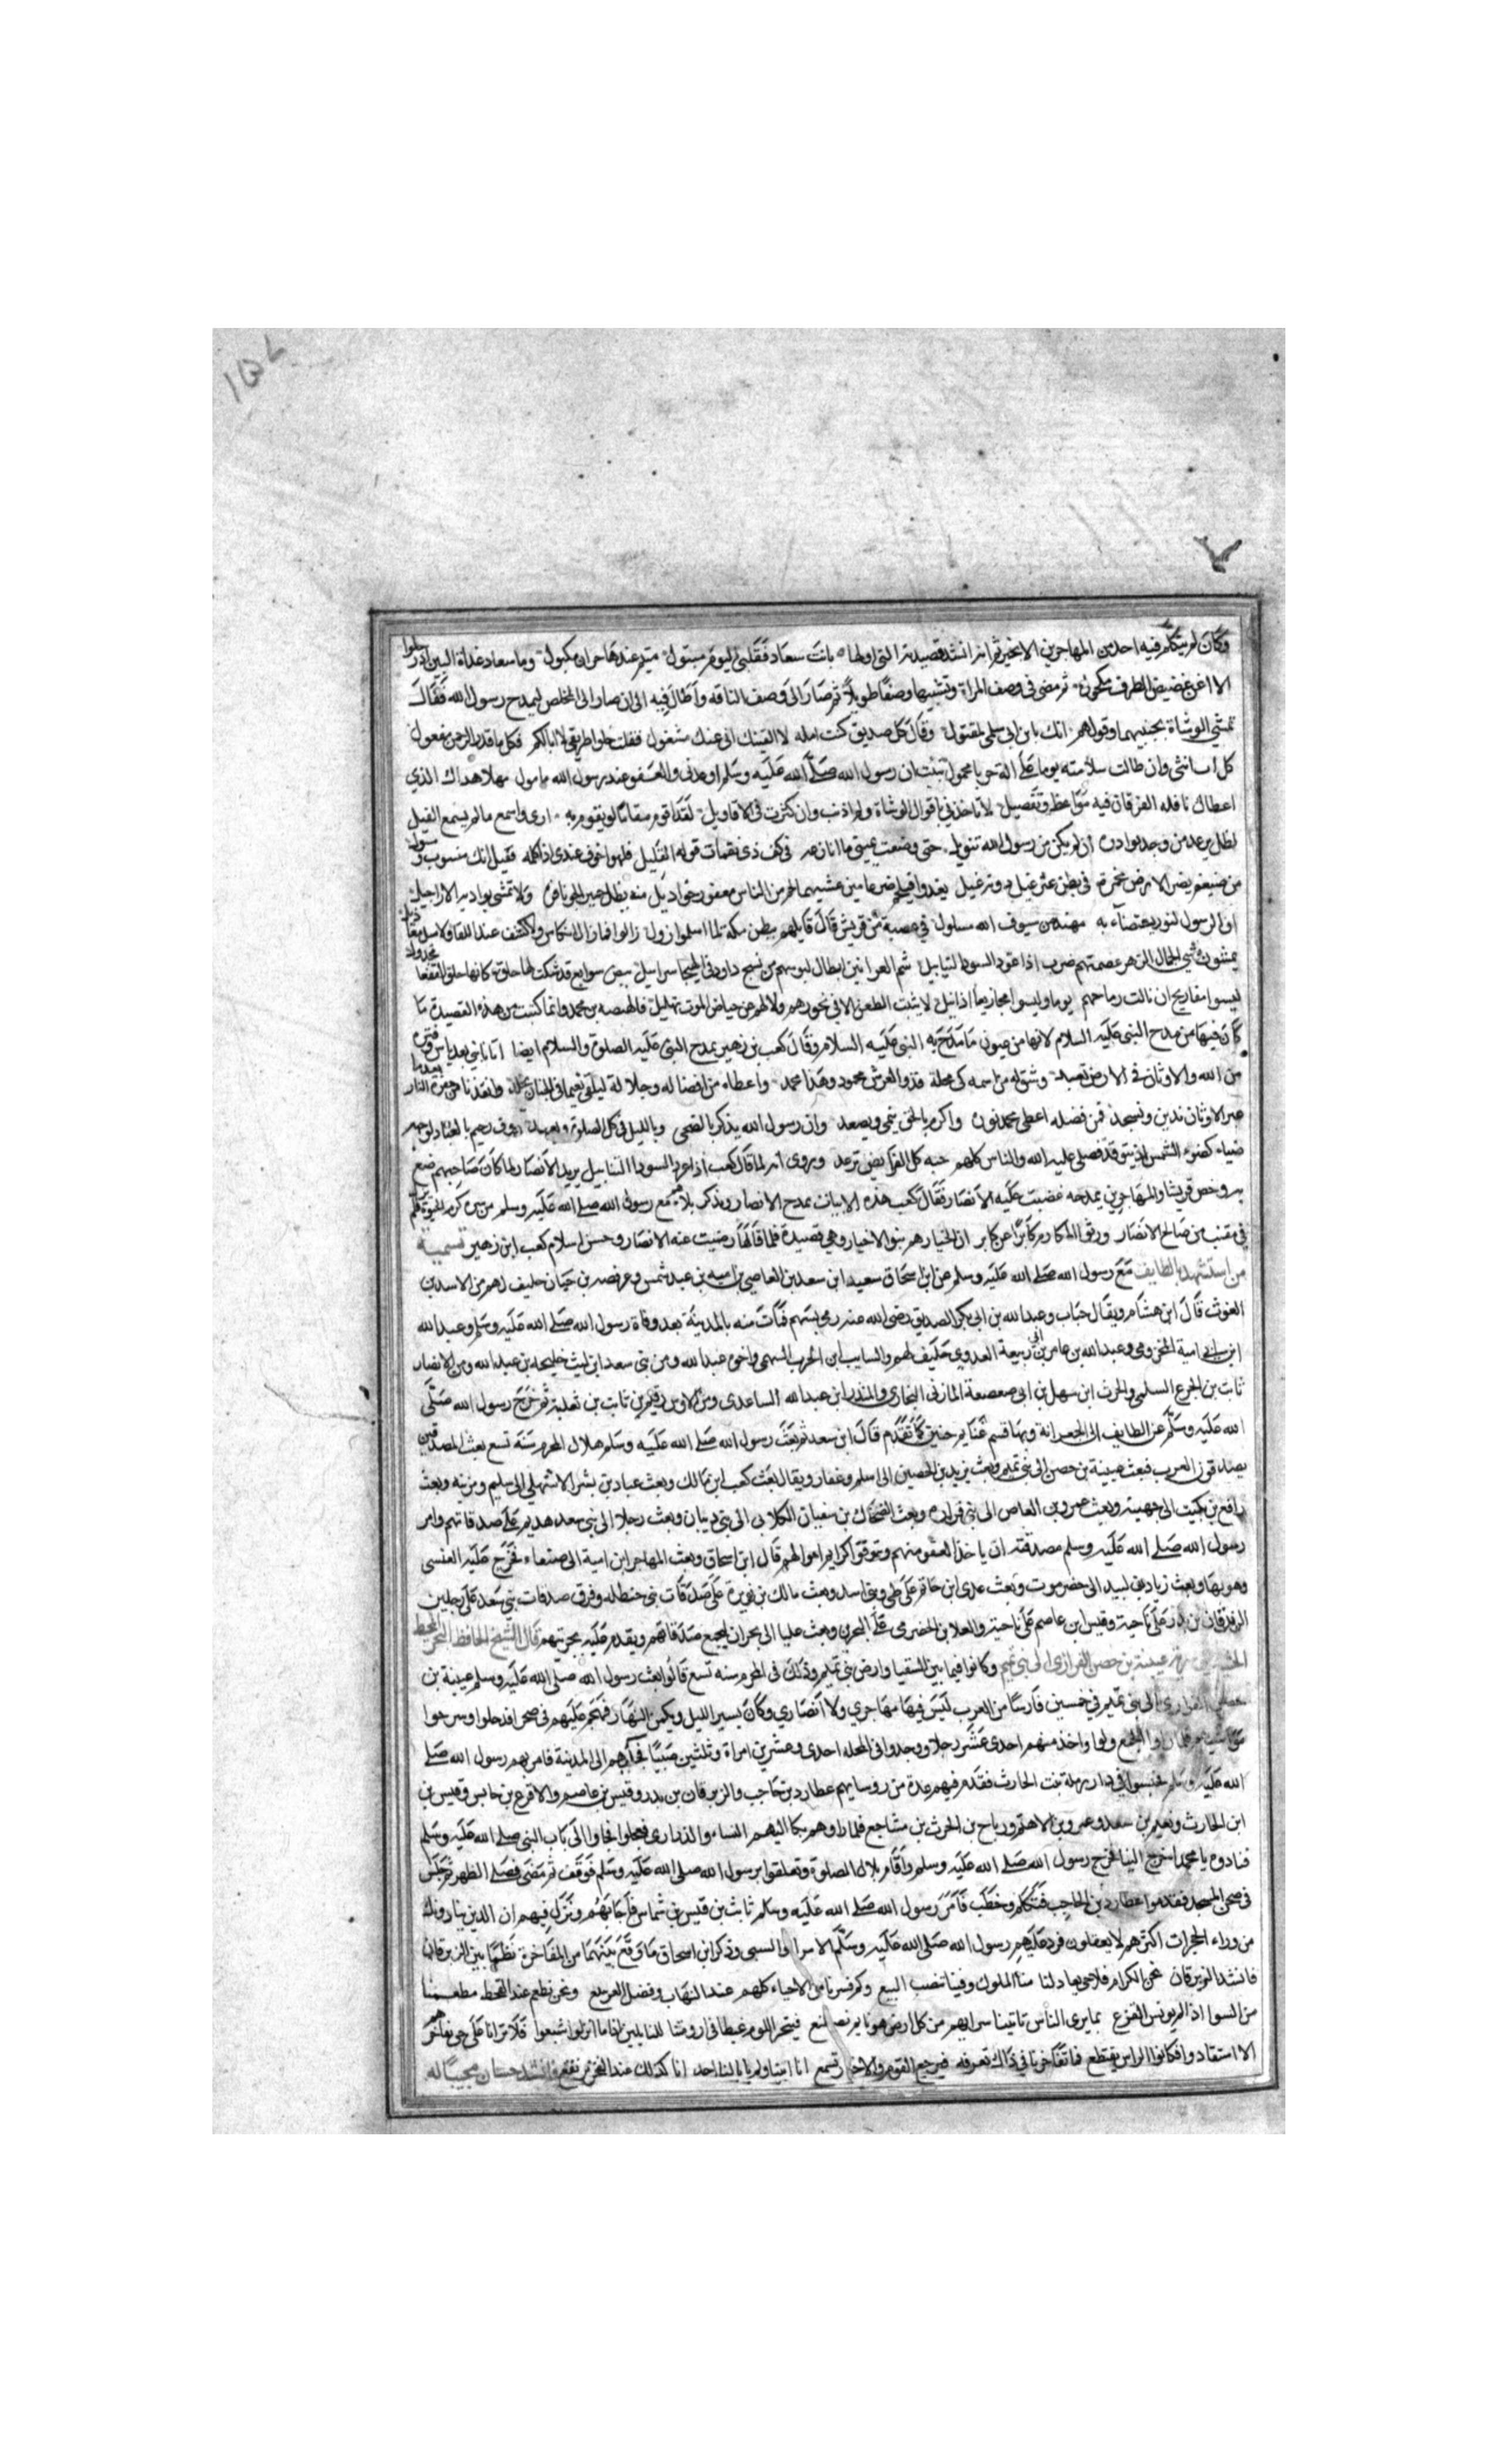 وكان لم يتكلم فيه احد من المهاجرين الا بخير ثم انه انشد قصيدته التي اولها بانت سعاد فقلبي اليوم متبول متيم عندها حران مكبول وما سعاد غداة البين اذ رحلوا
الا اغن غضيض الطرف مكحول ثم مضى في وصف المراة وتشبيبها وصفا طويلا ثم صار الى وصف الناقه واطال فيه الى ان صار الى المخلص ليمدح رسول الله فقال
تمشي الوشاة بجنبيهما وقولهم انك يا بن ابي سلمى لمقتول وقال كل صديق كنت امله لا الفينك اني عنك مشغول فقلت خلوا طريقي لا ابالكم فكل ما قدر الرحمن مفعول
كل ابن انثى وان طالت سلامته يوما على الة حدبا محمول نبئت ان رسول الله صلى الله عليه وسلم اوعدني والعفو عند رسول الله مامول مهلا هداك الذي
اعطاك نافله الفرقان فيه مواعظ وتفصيل لا تاخذني باقوال الوشاة ولم اذنب وان كثرت في الاقاويل لقد اقوم مقاما لو يقوم به ارى واسمع ما لم يسمع الفيل
لظل يرعد من وجد بوادره ان لم يكن من رسول الله تنويل حتى وضعت يميني ما انازعه في كف ذي نقمات قوله القيل فلهو اخوف عندي اذ اكلمه فقيل انك منسوب ومسول
من ضيغم بضراء الارض مخدره في بطن عثر غيل دونه غيل يغدو فيلحم ضرغامين عيشهما لحم من الناس معفور خراديل منه يظل حمير الجو نافرة ولا تمشي بواديه الاراجيل
ان الرسول لنور يستضاء به مهند من سيوف الله مسلول في عصبة من قريش قال قايلهم ببطن مكة لما اسلموا زولوا زالوا فما زال انكاس ولا كشف عند اللقا ولا ميل معازيل
يمشون مشي الجمال الزهر يعصمهم ضرب اذا عرد السود التنابيل شم العرانين ابطال لبوسهم من نسج داود في الهيجا سرابيل بيض سوابغ قد شكت لها حلق كانها حلق القفعا مجدول
ليسوا مفاريح ان نالت رماحهم يوما وليسوا مجازيعا اذا نيلوا لا يثبت الطعن الا في نحورهم ولا لهم عن حياض الموت تهليل وانما كتبت من هذه القصيدة ما
كان فيها من مدح النبي عليه السلام لانها من عيون ما مدح به النبي عليه السلام وقال كعب بن زهير يمدح النبي عليه الصلوة والسلام ايضا اتانا نبي بعد ياس وفترة
من الله والاوثان في الارض تعبد وشق له من اسمه كي يجله فذو العرش محمود وهذا محمد واعطاه من افضاله وجلاله
ضياء كضوء الشمس والناس كلهم ويروى انه لما قال كعب اذا عرد السود التنابيل يريد الانصار لما كان صاحبهم صنع
به وخص قريشا والمهاجرين بمدحه غضبت عليه الانصار فقال كعب هذه الابيات يمدح الانصار ويذكر بلاءهم مع رسول الله صلى الله عليه وسلم من سره كرم الحيوة فلا يزل
في مقنب من صالح الانصار ورثوا المكارم كابرا عن كابر ان الخيار هم بنو الاخيار وهي قصيدة فلما قالها رضيت عنه الانصار وحسن اسلام كعب ابن زهير تسمية
من استشهد بالطايف مع رسول الله صلى الله عليه وسلم عن ابن اسحاق سعيد ابن سعيد بن العاصي بن اميه بن عبد شمس وعرفصه بن حباب حليف لهم من الاسد بن
الغوث قال ابن هشام ويقال حباب وعبد الله بن ابي بكر الصديق رضي الله عنه رمي بسهم فمات منه بالمدينة بعد وفاة رسول الله صلى الله عليه وسلم وعبد الله
ابن ابي امية المخزومي وعبد الله بن عامر بن ربيعة العدوي حليف لهم والسايب ابن الحرث السهمي واخوه عبد الله ومن بني سعد ابن ليث جليحه بن عبد الله ومن الانصار
ثابت بن الجدع السلمي والحرث ابن سهل بن ابي صعصعة المازني النجاري والمنذر ابن عبد الله الساعدي ومن الاوس رقيم بن ثابت بن ثعلبة ثم خرج رسول الله صلى
الله عليه وسلم عن الطايف الى الجعرانة وبها قسم غنايم حنين كما تقدم قال ابن سعد ثم بعث رسول الله صلى الله عليه وسلم هلال المحرم سنة تسع بعث المصدقين
يصدقون العرب فبعث عيينة بن حصن الى بني تميم وبعث يزيد بن الحصين الى اسلم وغفار ويقال بعث كعب ابن مالك وبعث عباد بن بشر الاشهلي الى سليم ومزينه وبعث
رافع بن مكيث الى جهينة وبعث عمرو بن العاص الى بني فزاره وبعث الضحاك بن سفيان الكلابي الى بني كلاب وبعث رجلا الى بني سعد هديم على صدقاتهم وامر
رسول الله صلى الله عليه وسلم مصدقيه ان ياخذوا العفو منهم ويتوقوا كرايم اموالهم قال ابن اسحاق وبعث المهاجر ابن امية الى صنعاء فخرج عليه العنسي
وهو بها وبعث زياد بن لبيد الى حضرموت وبعث عدي ابن حاتم على طي وبني اسد وبعث مالك بن نويرة على صدقات بني حنظله وفرق صدقات بني سعد على رجلين
الزبرقان بن بدر على ناحية وقيس ابن عاصم على ناحية والعلا بن الحضرمي على البحرين وبعث عليا الى نجران ليجمع صدقاتهم ويقدم عليه بجزيتهم قال الشيخ الحافظ
سرية عيينة بن حصن الفزاري الى بني تميم وكانوا فيما بين السقيا وارض بني تميم وذلك في المحرم سنه تسع قالوا بعث رسول الله صلى الله عليه وسلم عيينة بن
حصن الفزاري الى بني تميم في خمسين فارسا من العرب ليس فيها مهاجري ولا انصاري وكان يسير الليل ويكمن النهار فهجم عليهم في صحراء فدخلوا وسرحوا
مواشيهم فلما راوا الجمع ولوا واخذ منهم احدى عشر رجلا ووجدوا في المحله احدى وعشرين امراة وثلثين صبيا فجلبهم الى المدينة فامر بهم رسول الله صلى
الله عليه وسلم فحبسوا في دار رملة بنت الحارث فقدم فيهم عدة من روسايهم عطارد بن حاجب والزبرقان بن بدر وقيس بن عاصم والاقرع بن حابس وقيس بن
ابن الحارث ونعيم بن سعد وعمرو بن الاهتم ورباح بن الحرث بن مشاجع فلما راوهم بكا اليهم النساء والذراري فعجلوا فجاوا الى باب النبي صلى الله عليه وسلم
فنادوه يا محمد اخرج الينا فخرج رسول الله صلى الله عليه وسلم واقام بلال الصلوة وتعلقوا برسول الله صلى الله عليه وسلم فوقف ثم مضى فصلى الظهر ثم جلس
في صحن المسجد فقدموا عطارد بن الحاجب فتكلم وخطب فامر رسول الله صلى الله عليه وسلم ثابت بن قيس بن شماس فاجابهم ونزل فيهم ان الذين ينادونك
من وراء الحجرات اكثرهم لا يعقلون فرد عليهم رسول الله صلى الله عليه وسلم الاسرا والسبي وذكر ابن اسحاق ما وقع بينهما من المفاخرة نظما بين الزبرقان
فانشد الزبرقان نحن الكرام فلا حي يعادلنا منا الملوك وفينا تنصب البيع وكم قسرنا من الاحياء كلهم عند النهاب وفضل العز يتبع ونحن نطعم عند القحط مطعمنا
من الشوا اذا لم يونس القزع بما يرى الناس تاتينا سراتهم من كل ارض هويا ثم نصطنع فننحر الكوم عبطا في ارومتنا للنازلين اذا ما انزلوا شبعوا فلا ترانا على حي نفاخرهم
الا استقادوا فكانوا الراس يقتطع فمن تفاخرنا في ذاك نعرفه فيرجع القوم والاخبار تسمع انا ابينا ولم يابا لنا احد انا كذلك عند الفخر نرتفع وانشد حسان مجيبا له